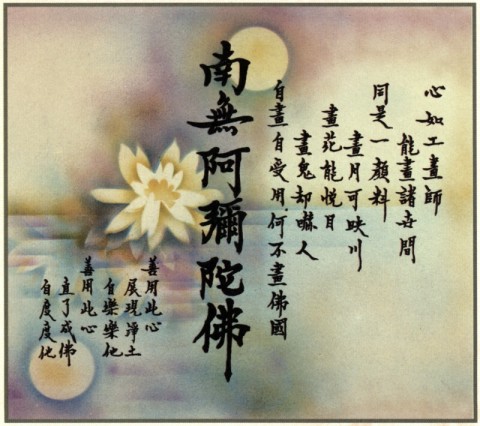 心如工畫師
能畫諸世間
同是一顏料
畫月可映川
畫花能悅目
畫鬼却嚇人
自畫自受用,何不畫佛國
南無阿彌陀佛
善用此心
展現淨土
自樂樂他
善用此心
直了成佛
自度度他